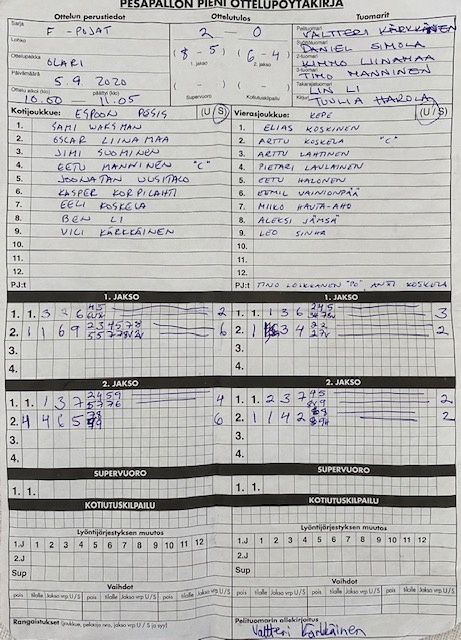 PESÄPALLON PIENI OTTELUPÖYTÄKIRJA
Ottelun perustiedot Ottelutulos Tuomarit
Sarja F-POJAT 2 - 0 Pelituomari VALTTERI KÄRKKÄINEN
Lohko Syöttötuomari DANIEL SIMOLA
Ottelupaikka OLARI (8 - 5) (6 - 4) 2-tuomari KIMMO LIINAMAA
1. jakso 2. jakso 3-tuomari TIMO MANNINEN
Päivämäärä 5.9 2020 Takarajatuomari LIN LI
Ottelu alkoi (klo) päättyi (klo) Supervuoro Kotiutuskilpailu Kirjuri TUULIA HAROLA
10.00 - 11.05
Kotijoukkue: ESPOON PESIS (U/S) Vierasjoukkue: KEPE (U/S)
1. SAMI WAKSMAN 1. ELIAS KOSKINEN
2. OSCAR LIINAMAA 2. ARTTU KOSKELA "C"
3. JIMI SUOMINEN 3. ARTTU LAHTINEN
4. EETU MANNINEN "C" 4. PIETARI LAULAINEN
5. JOONATAN UUSITALO 5. EETU HALONEN
6. KASPER KORPILAHTI 6. EEMIL VAINIONPÄÄ
7. EELI KOSKELA 7. MIIKO HAUTA-AHO
8. BEN LI 8. ALEKSI JÄMSÄ
9. VILI KÄRKKÄINEN 9. LEO SINHA
10. 10.
11. 11.
12. 12.
PJ:t PJ:t TIMO LOIKKANEN "PO", ANTTI KOSKELA
1. JAKSO 1. JAKSO
1. 1. 3 2 6 2 1. 1. 1 3 6 3
2. 1 1 6 9 6 2. 1 3 4 2
3. 3.
4. 4.
2. JAKSO 2. JAKSO
1. 1. 1 3 7 4 1. 1. 2 3 7 2
2. 4 4 6 5 6 2. 1 1 4 2 2
3. 3.
4. 4.
SUPERVUORO SUPERVUORO
1. 1. 1. 1.
KOTIUTUSKILPAILU KOTIUTUSKILPAILU
Lyöntijärjestyksen muutos Lyöntijärjestyksen muutos
1.J 1 2 3 4 5 6 7 8 9 10 11 12 1.J 1 2 3 4 5 6 7 8 9 10 11 12
2.J 2.J
Sup Sup
Vaihdot Vaihdot
pois tilalle Jakso vrp U / S pois tilalle Jakso vrp U / S pois tilalle Jakso vrp U / S pois tilalle Jakso vrp U / S
Rangaistukset (joukkue, pelaaja nro, jakso vrp U / S ja syy) Pelituomarin allekirjoitus
Valtteri Kärkkäinen